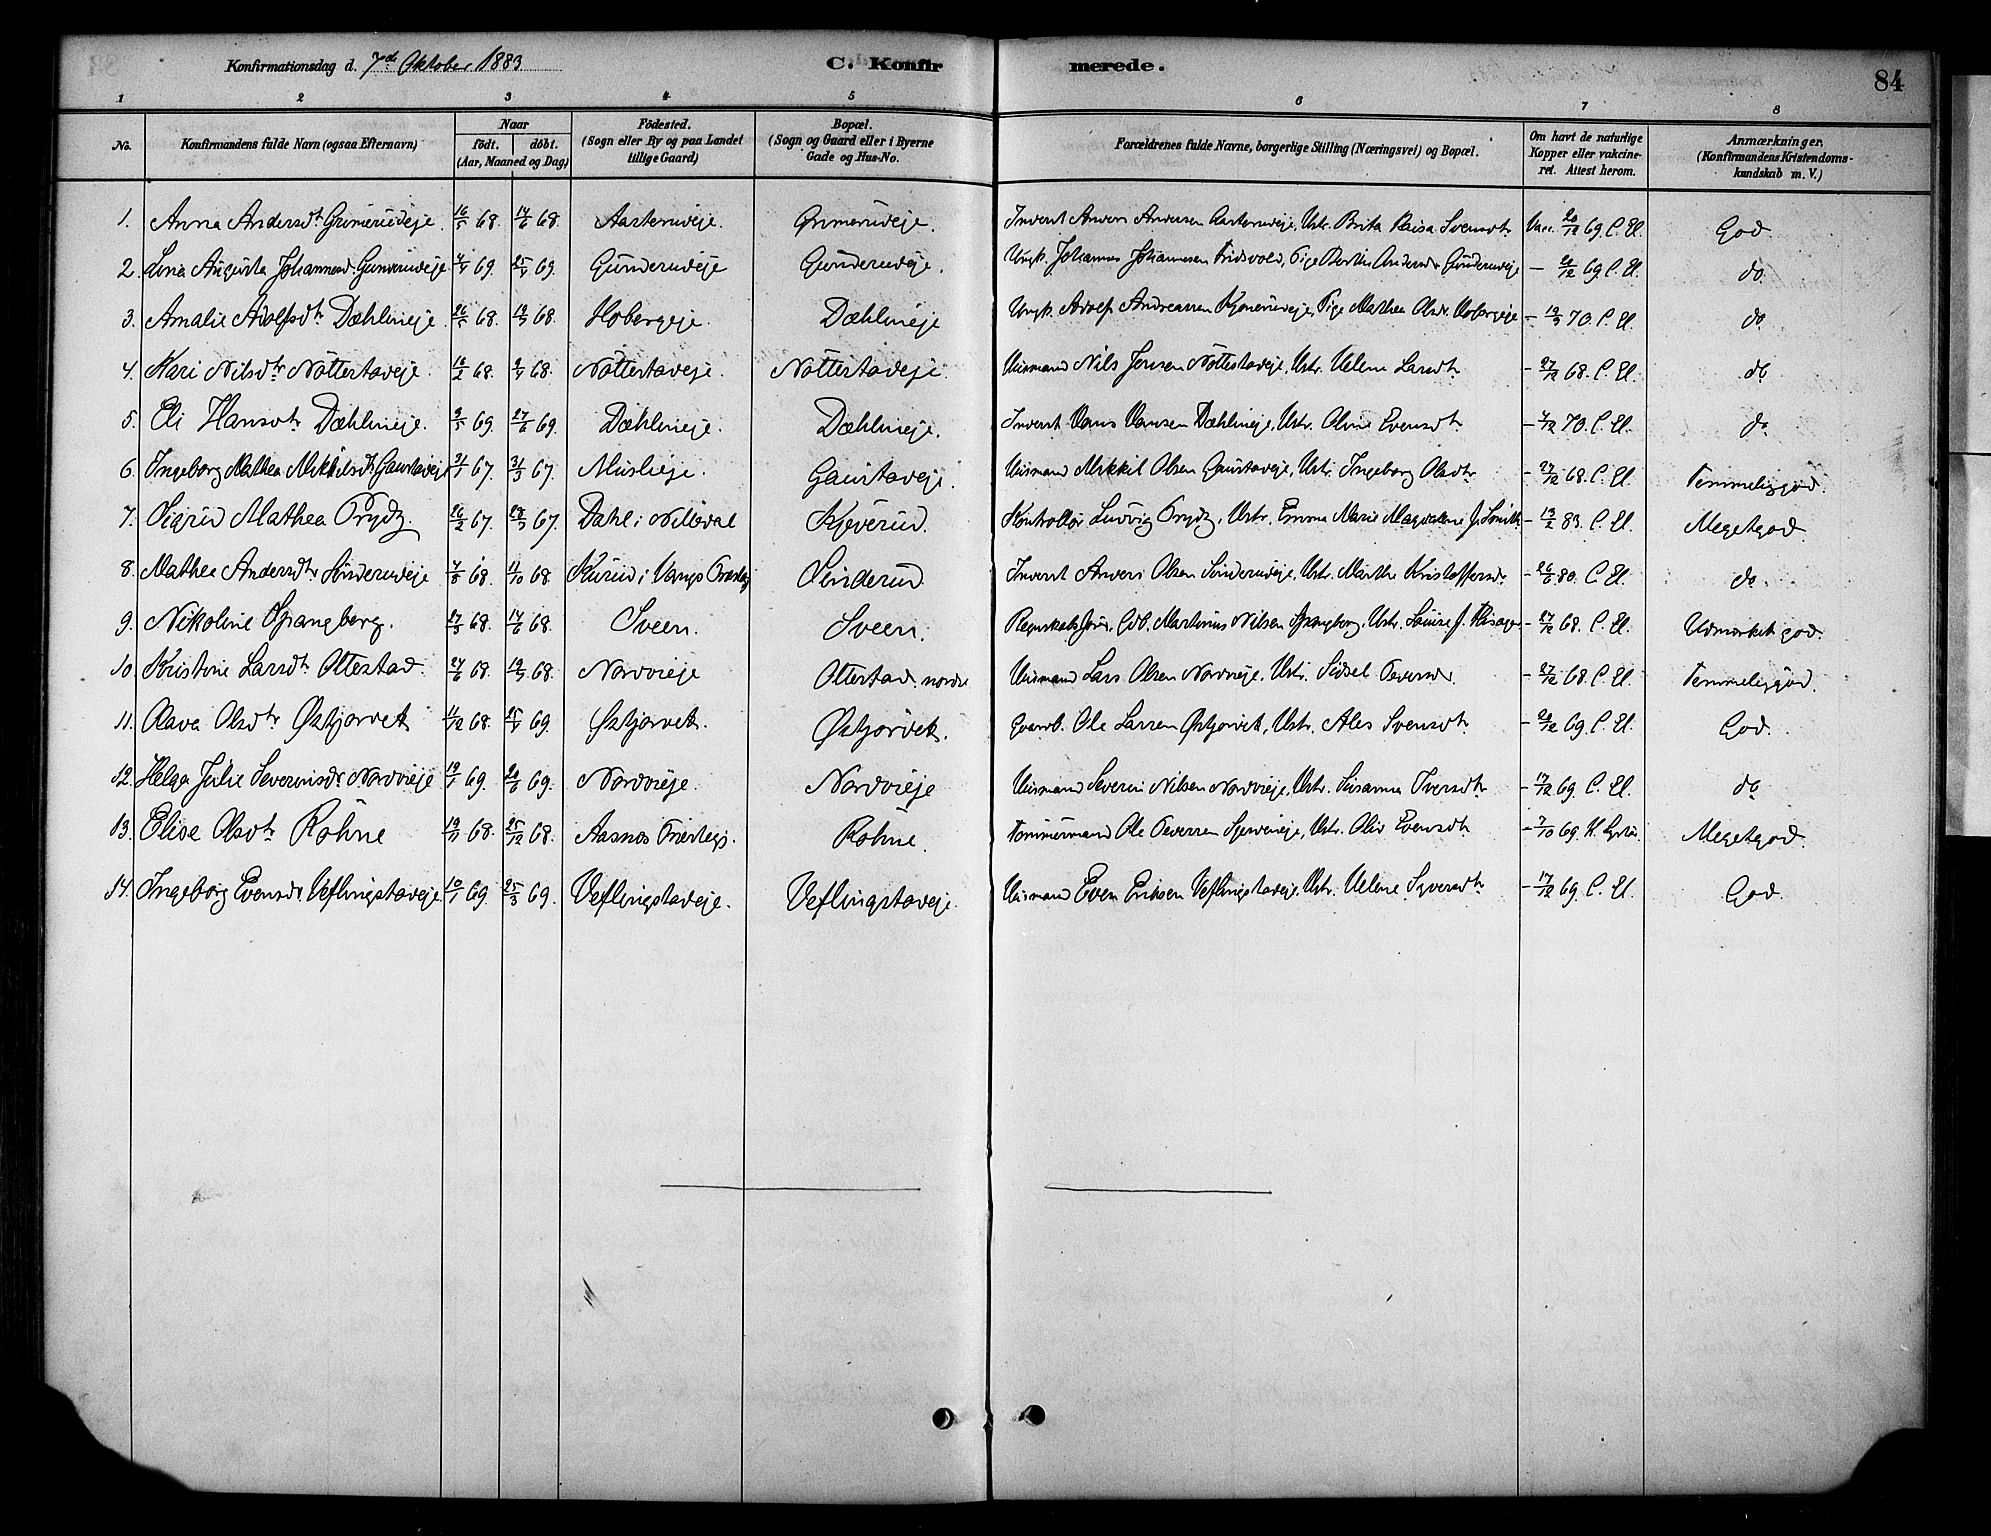 Konfirmationsdag d. 7de Oktober 1883 C. Konfirmerede. 84
1 2 3 4 5 6 7 8
No. Konfirmandens fulde Navn (ogsaa Efternavn) Naar født. døbt. (Aar, Maaned og Dag) Fødested. (Sogn eller By og paa Landet tillige Gaard) Bopæl. (Sogn og Gaard eller i Byerne Gade og Hus-No. Forældrenes fulde Navne, borgerlige Stilling (Næringsvei) og Bopæl. Om havt de naturlige Kopper eller vakcineret. Attest herom. Anmærkninger. (Konfirmandens Kristendomskundskab m. V.)
1. Anna Andersdtr Grimerudeje. 16/5 68. 14/6 68. Aasterudeje. Grimerudeje. Inderst Anders Andersen Aasterudeje, Ustr. Brita Kaisa Svensdtr Vacc. 20/12 69 C. El. God.
2. Lina Augusta Johannesd. Gunderudeje 4/4 69. 25/4 69. Gunderudeje Gunderudeje. Ungk. Johannes Johannesen Eidsvold, Pige Berthe Andersdr Gunderudeje – 20/12 69 C. El. do.
3. Amalie Adolfsdtr Dæhlineje. 26/5 68. 19/7 68. Hobergeje. Dæhlineje Ungk. Adolf Andreassen Kjonerudeje, Pige Mathea Olsdr. Hobergeje – 19/9 70. C. El. do
4. Kari Nilsdtr Nøttestadeje. 18/2 68. 9/4 68. Nøttestadeje. Nøttestadeje. Husmand Nils Jensen Nøttestadeje, Ustr. Helene Larsdtr – 27/12 68. C. El. do
5. Eli Hansdtr Dæhlineje. 9/5 69. 27/6 69. Dæhlineje. Dæhlineje. Inderst Hans Hansen Dæhlineje, Ustr. Oline Evensdtr – 4/12 70. C. El. do
6. Ingeborg Mathea Mikkelsdtr Gaustadeje 31/1 67. 31/3 67. Muslieje. Gaustadeje. Husmand Mikkel Olsen Gaustadeje, Ustr. Ingeborg Olsdtr – 27/12 68. C. El. Temmelig god.
7. Sigrid Mathea Prydz. 26/2 67. 28/7 67. Dahl i Ullevål Kjeverud. Kontrollør Ludvig Prydz, Ustr. Emma Marie Magdalene f. Smith – 13/2 83. C. El. Meget god
8. Mathea Andersdtr Sinderudeje 7/8 68. 11/10 68. Kurud i Vangs Præstegj. Sinderud Inderst Anders Olsen Sinderudeje, Ustr. Marthe Kristoffersdr – 26/6 80. C El. do.
9. Nikoline Spangberg. 27/3 68. 14/6 68. Sveen. Sveen. Regnskabsfører, Edb. Martinus Nilsen Spangberg, Ustr. Louise f. – 27/12 68. C. El. Udmærket god.
10. Kristine Larsdtr Ottestad. 24/6 68. 19/7 68. Nordvieje Ottestad nordre Husmand Lars Olsen Nordvieje, Ustr. Sidsel Pedersdr. – 27/12 68. C. El. Temmelig god.
11. Olava Olsdtr Østjorvet 11/12 68. 25/4 69. Østjorvet. Østjorvet. Gaardb. Ole Larsen Østjorvet, Ustr. Ales Svensdtr – 20/12 69 C. El. God.
12. Helga Julie Severinsdr Nordvieje 19/1 69. 20/6 69. Nordvieje. Nordvieje Husmand Severin Nilsen Nordvieje, Ustr. Susanna Iversdtr – 17/12 69. C. El. do
13. Elise Olsdtr Rohne 19/11 68. 25/12 68. Aasnes Præstegj. Rohne. Tømmermand Ole Pedersen, Ustr. Oliv Evensdtr – 7/10 69. Meget god.
14. Ingeborg Evensdr Veflingstadeje 10/1 69. 25/3 69. Veflingstadeje. Veflingstadeje. Husmand Even Eriksen Veflingstadeje, Ustr. Helene Syversdtr – 17/12 69. C. El. God.